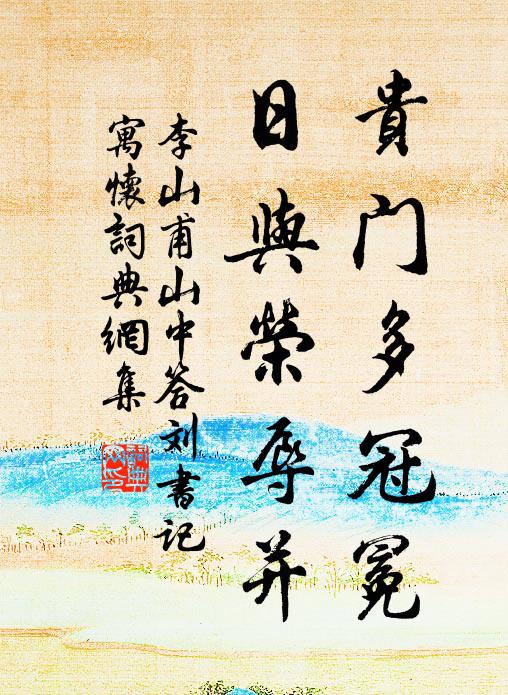 貴门多冠冕
日與榮辱并
李山甫山中答刘書记
寓懷詞典網集